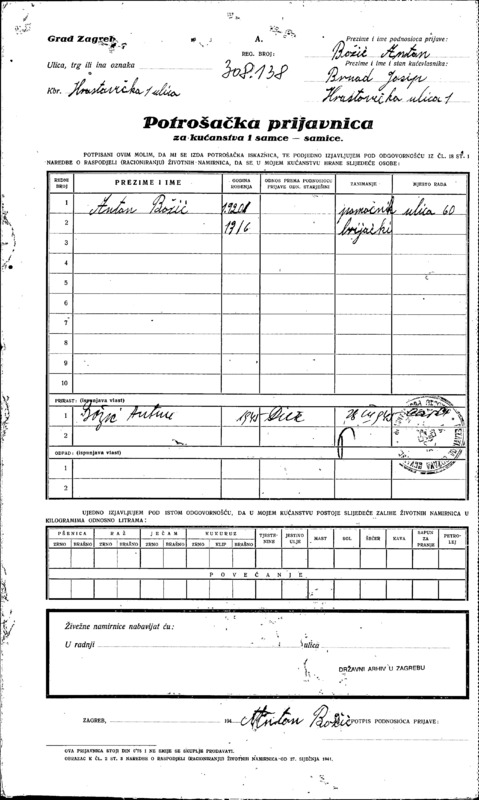 Grad Zagreb
A.
Prezime i ime podnosioca prijave:
REG. BROJ:
Božić Antun
Ulica, trg ili ina oznaka
308.138
Prezime i ime i stan kućevlasnika:
Brnad Josip
Kbr. Hrastovička 1 ulica
Hrastovička ulica 1
Potrošačka prijavnica
za kućanstva i samce — samice.
POTPISANI OVIM MOLIM, DA MI SE IZDA POTROŠAČKA ISKAZNICA, TE PODJEDNO IZJAVLJUJEM POD ODGOVORNOŠĆU IZ ČL. 18 ST. 1
NAREDBE O RASPODJELI (RACIONIRANJU) ŽIVOTNIH NAMIRNICA, DA SE U MOJEM KUĆANSTVU HRANE SLIJEDEĆE OSOBE:
REDNI BROJ PREZIME I IME GODINA ROĐENJA ODNOS PREMA PODNOSIOCU PRIJAVE ODN. STARJEŠINI ZANIMANJE MJESTO RADA
1 Antun Božić pomoćnik ulica 60
2 1916 brijački
3
4
5
6
7
8
9
10
PRIRAST: (ispunjava vlast)
1 Božić 1945
2
OTPAD: (ispunjava vlast)
1
2
UJEDNO IZJAVLJUJEM POD ISTOM ODGOVORNOŠĆU, DA U MOJEM KUĆANSTVU POSTOJE SLIJEDEĆE ZALIHE ŽIVOTNIH NAMIRNICA U
KILOGRAMIMA ODNOSNO LITRAMA:
PŠENICA RAŽ JEČAM KUKURUZ TJESTENINE JESTIVO ULJE MAST SOL ŠEĆER KAVA SAPUN ZA PRANJE PETROLEJ
ZRNO BRAŠNO ZRNO BRAŠNO ZRNO BRAŠNO ZRNO KLIP BRAŠNO
POVEĆANJE
Živežne namirnice nabavljat ću:
U radnji ulica
DRŽAVNI ARHIV U ZAGREBU
ZAGREB, 194 Antun Božić POTPIS PODNOSIOCA PRIJAVE:
OVA PRIJAVNICA STOJI DIN 0'75 I NE SMIJE SE SKUPLJE PRODAVATI.
OBRAZAC K ČL. 2 ST. 3 NAREDBE O RASPODJELI (RACIONIRANJU) ŽIVOTNIH NAMIRNICA OD 27. SIJEČNJA 1941.